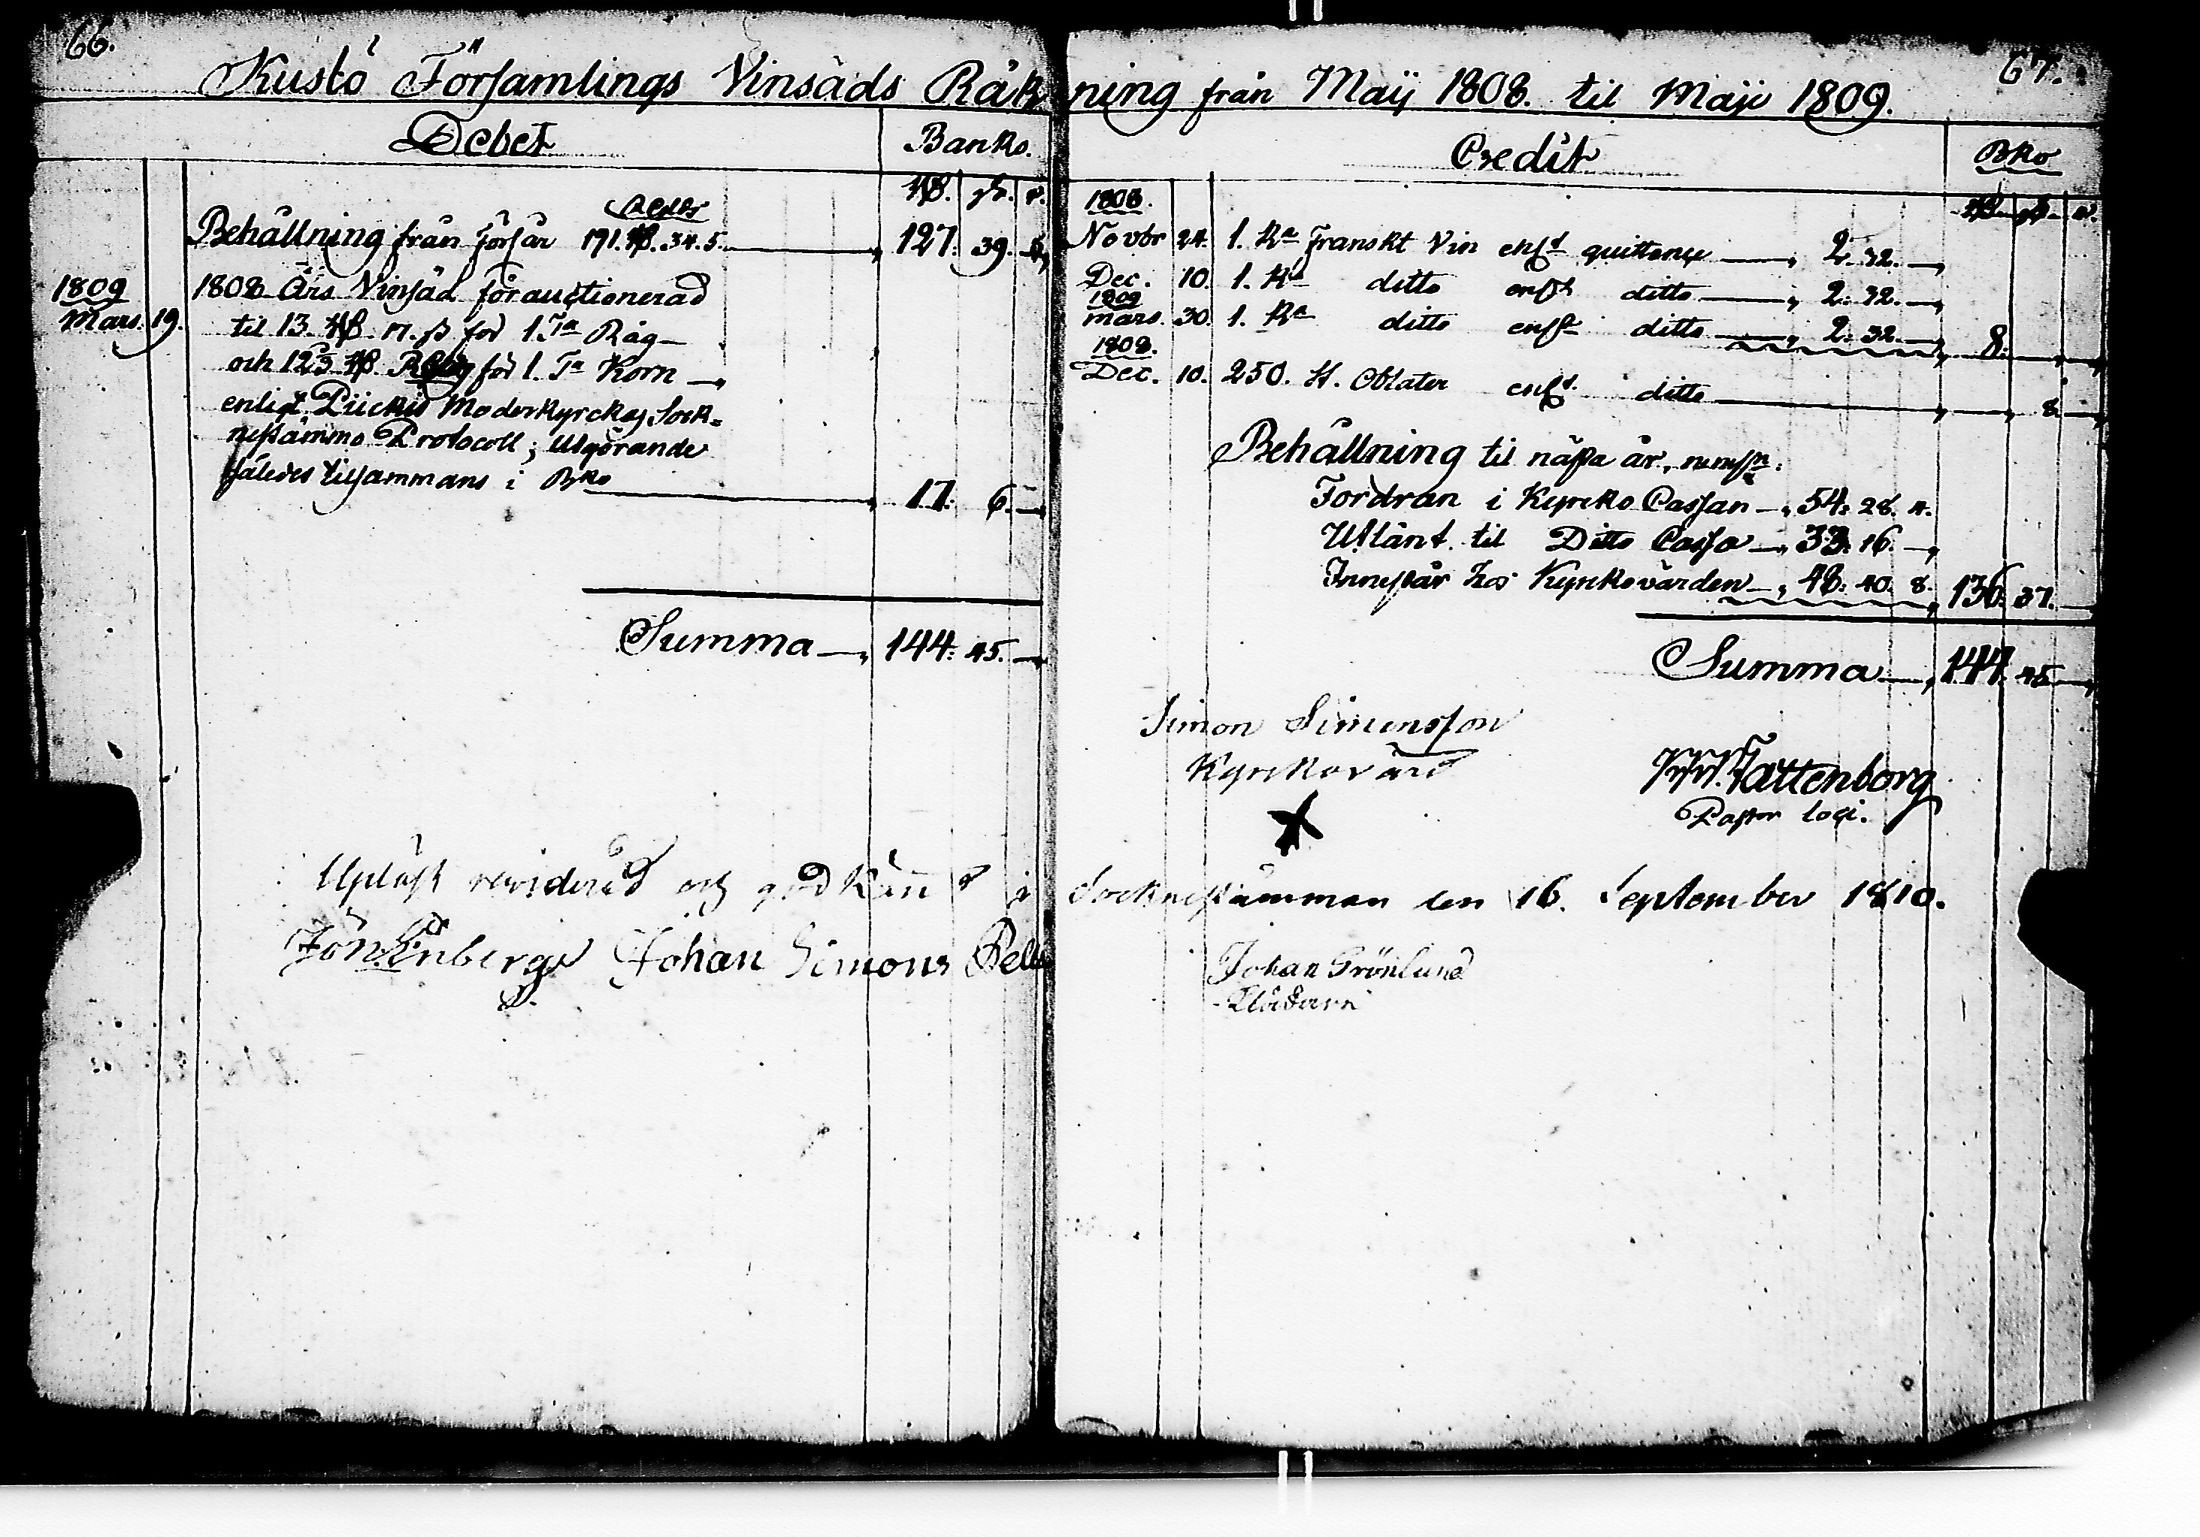 66.
Kustö Församlings Vinsäds Räk
Debet
Banko.
Behållning från förfår 191. 34. 5. 127. 39.
1809
Mars. 19.
1808 Års Vinsäd förauctionerad
til 13. 17. ß för 1. Ta Råg
och 12 2/3 för 1. Ta Korn
enligt Piickis Moderkyrckas Sock=
nestämmo Protocoll; Utgörande
således tilsammans i Bko 17. 6.
Summa 144. 45.
Upläst reviderad och godkänd i
Johan Simons
67.
ning från Maij 1808. til Maji 1809.
Credit
Bko
1808.
Novbr 24. 1. Ka Franskt Vin enlt quittence 2. 32.
Dec. 10. 1. Ka ditto enlt ditto 2. 32.
1809
Mars. 30. 1. Ka ditto enlt ditto 2. 32. 8.
1808.
Dec. 10. 250. st. Oblater enlt ditto 8
Behållning til nästa år, nemln:
Fordran i Kyrko Cassan 54. 28. 4.
Utlänt til Ditto Cassa 33. 16.
Innestår hos Kyrkovärden 48. 40. 8. 136. 37.
Summa 144. 45
Simon Simonsson
Kyrkovärd
Tattenborg
Pastor loci.
Socknestämman den 16. September 1810.
Johan Grönlund